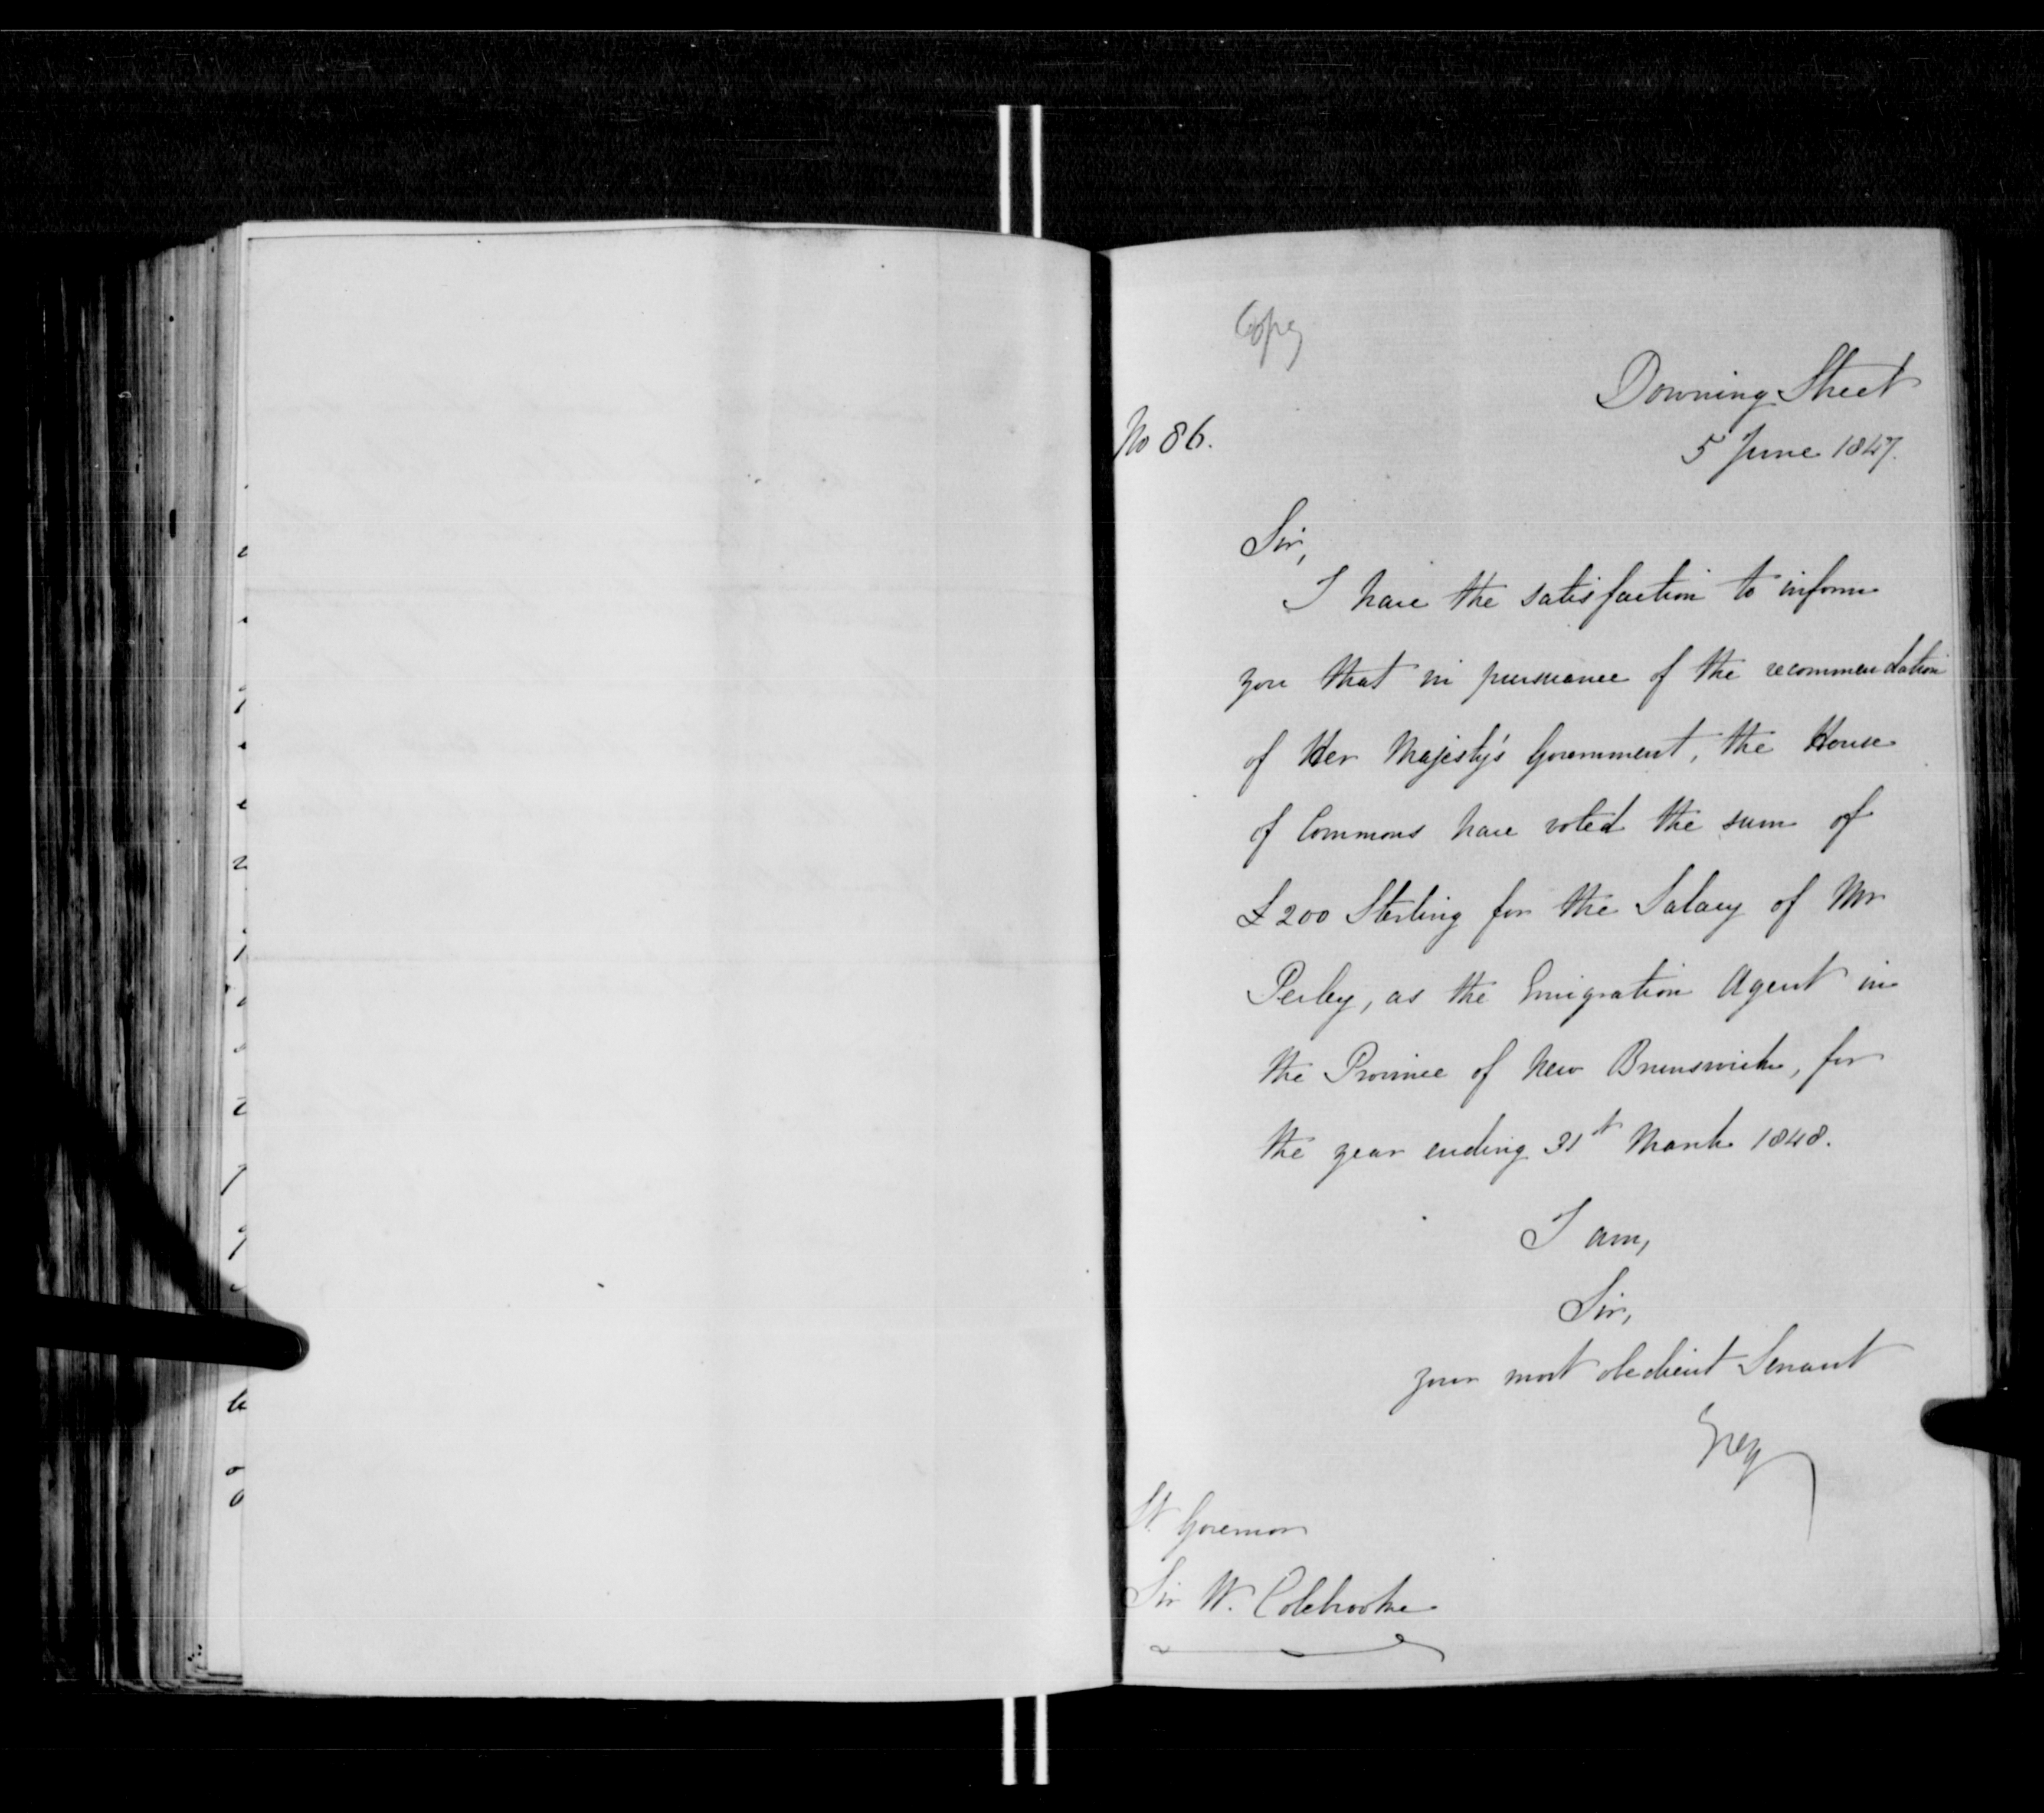 Copy
Downing Street
No 86.
5 June 1847.
Sir,
I have the satisfaction to inform
you that in pursuance of the recommendation
of Her Majesty's Government, the House
of Commons have voted the sum of
£200 Sterling for the Salary of Mr
Perley, as the Emigration Agent in
the Province of New Brunswick, for
the year ending 31st March 1848.
I am,
Sir,
your most obedient Servant
Grey
Lt Governor
Sir W. Colebrooke